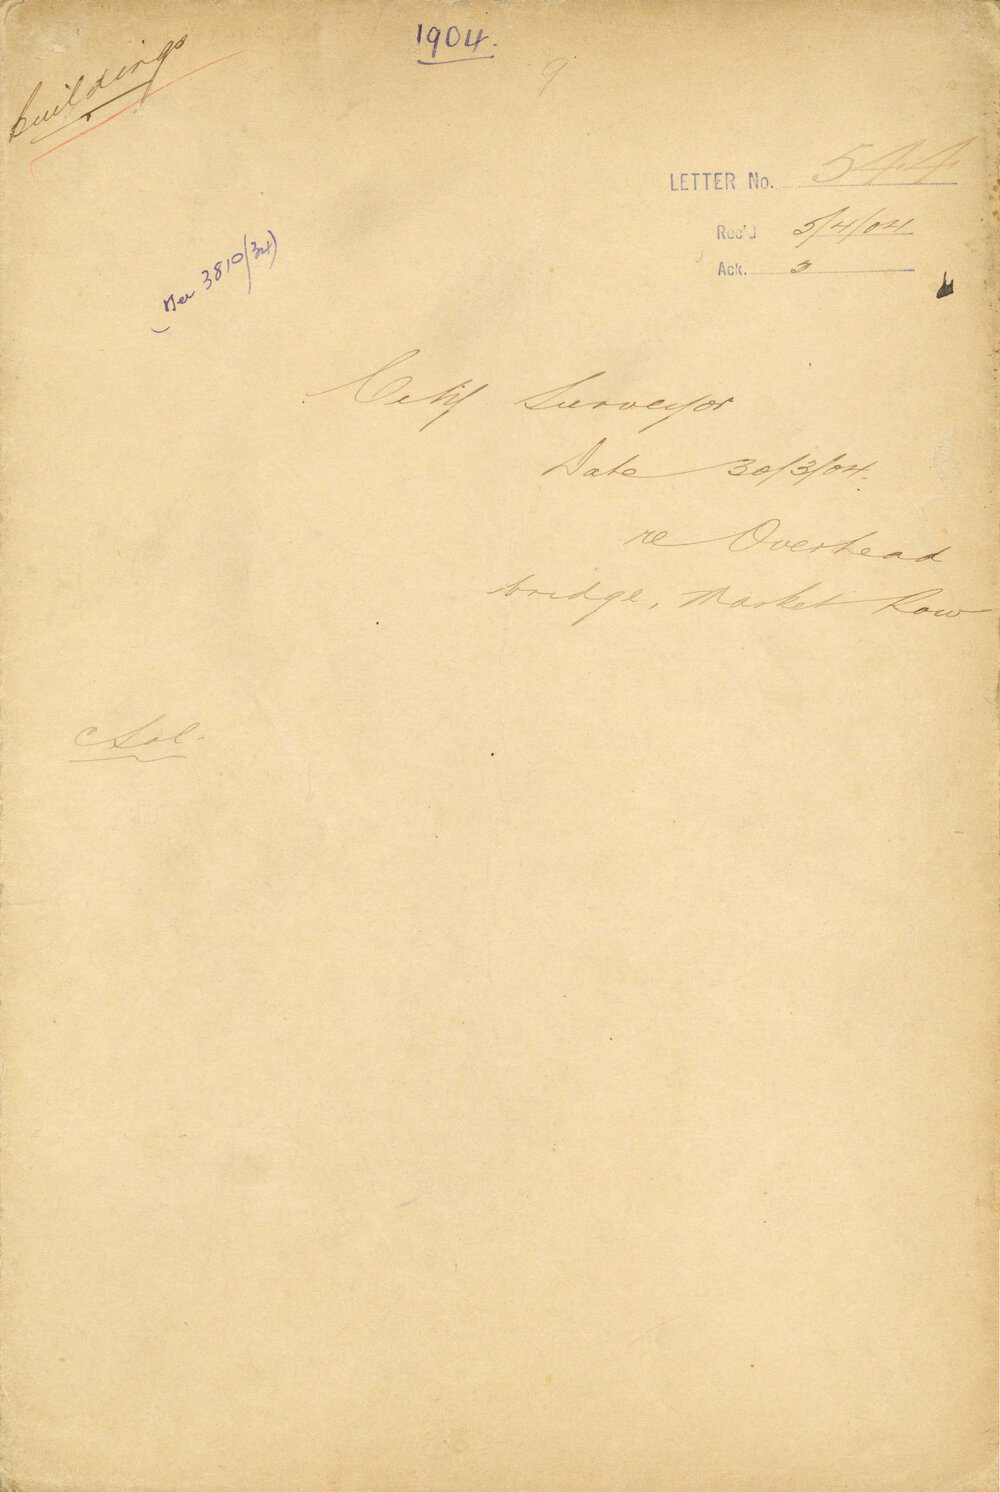 1904.
buildings
LETTER No. 544
Rec'd 5/4/04
Ack.
3810/34)
City Surveyor
Date 30/3/04.
re Overhead
bridge, Market Row